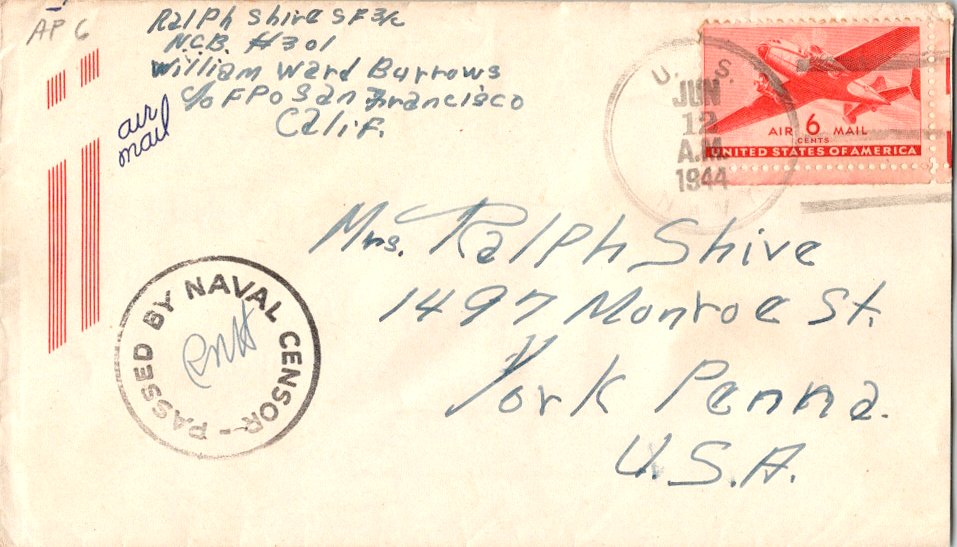 AP 6
Ralph Shive SF3/c
N.C.B. #301
William Ward Burrows
c/o FPO San Francisco
Calif.
air
mail
U. S.
JUN
12
A.M.
1944
AIR 6 MAIL
CENTS
UNITED STATES OF AMERICA
Mrs. Ralph Shive
1497 Monroe St.
York Penna.
U.S.A.
PASSED BY NAVAL CENSOR